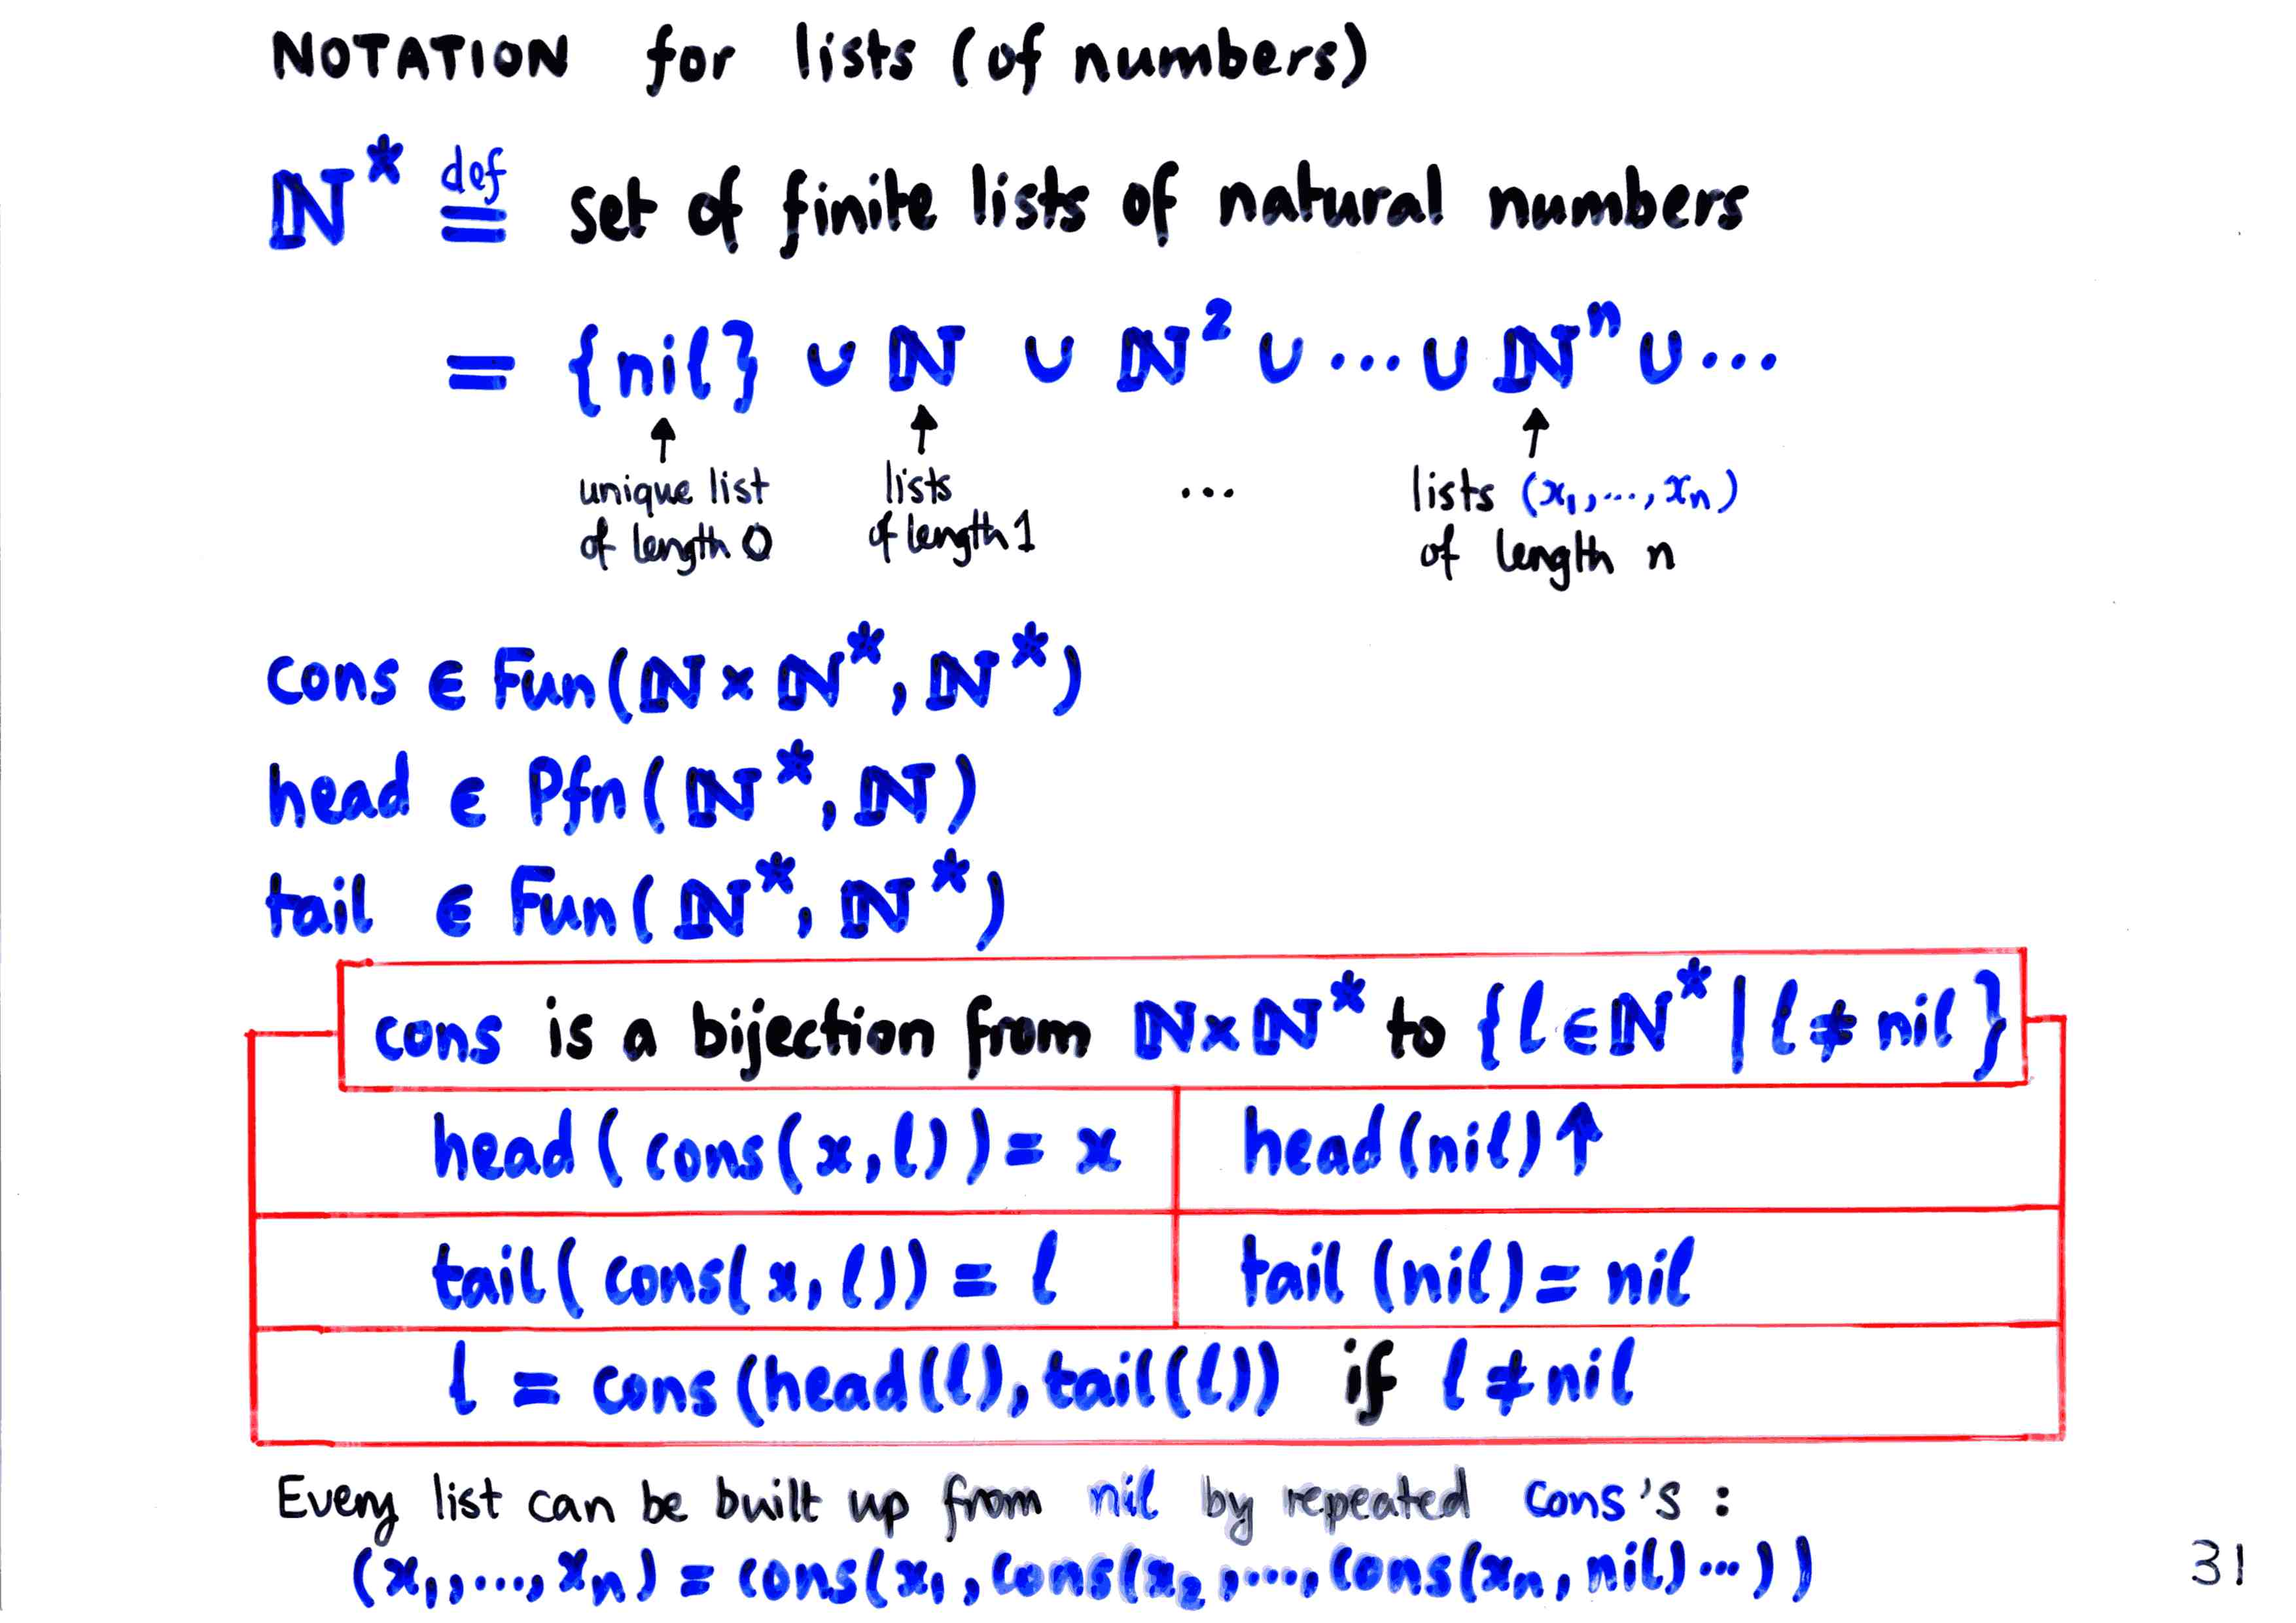 NOTATION for lists (of numbers)
ℕ* def= set of finite lists of natural numbers
= {nil} ∪ ℕ ∪ ℕ² ∪ ... ∪ ℕⁿ ∪ ...
↑ ↑ ↑
unique list lists ... lists (x₁,...,xₙ)
of length 0 of length 1 of length n
cons ∈ Fun(ℕ×ℕ*, ℕ*)
head ∈ Pfn(ℕ*, ℕ)
tail ∈ Fun(ℕ*, ℕ*)
cons is a bijection from ℕ×ℕ* to {l∈ℕ* | l ≠ nil}
head(cons(x,l)) = x head(nil)↑
tail(cons(x,l)) = l tail(nil) = nil
l = cons(head(l), tail(l)) if l ≠ nil
Every list can be built up from nil by repeated cons's :
(x₁,...,xₙ) = cons(x₁, cons(x₂,..., cons(xₙ, nil)...))
31